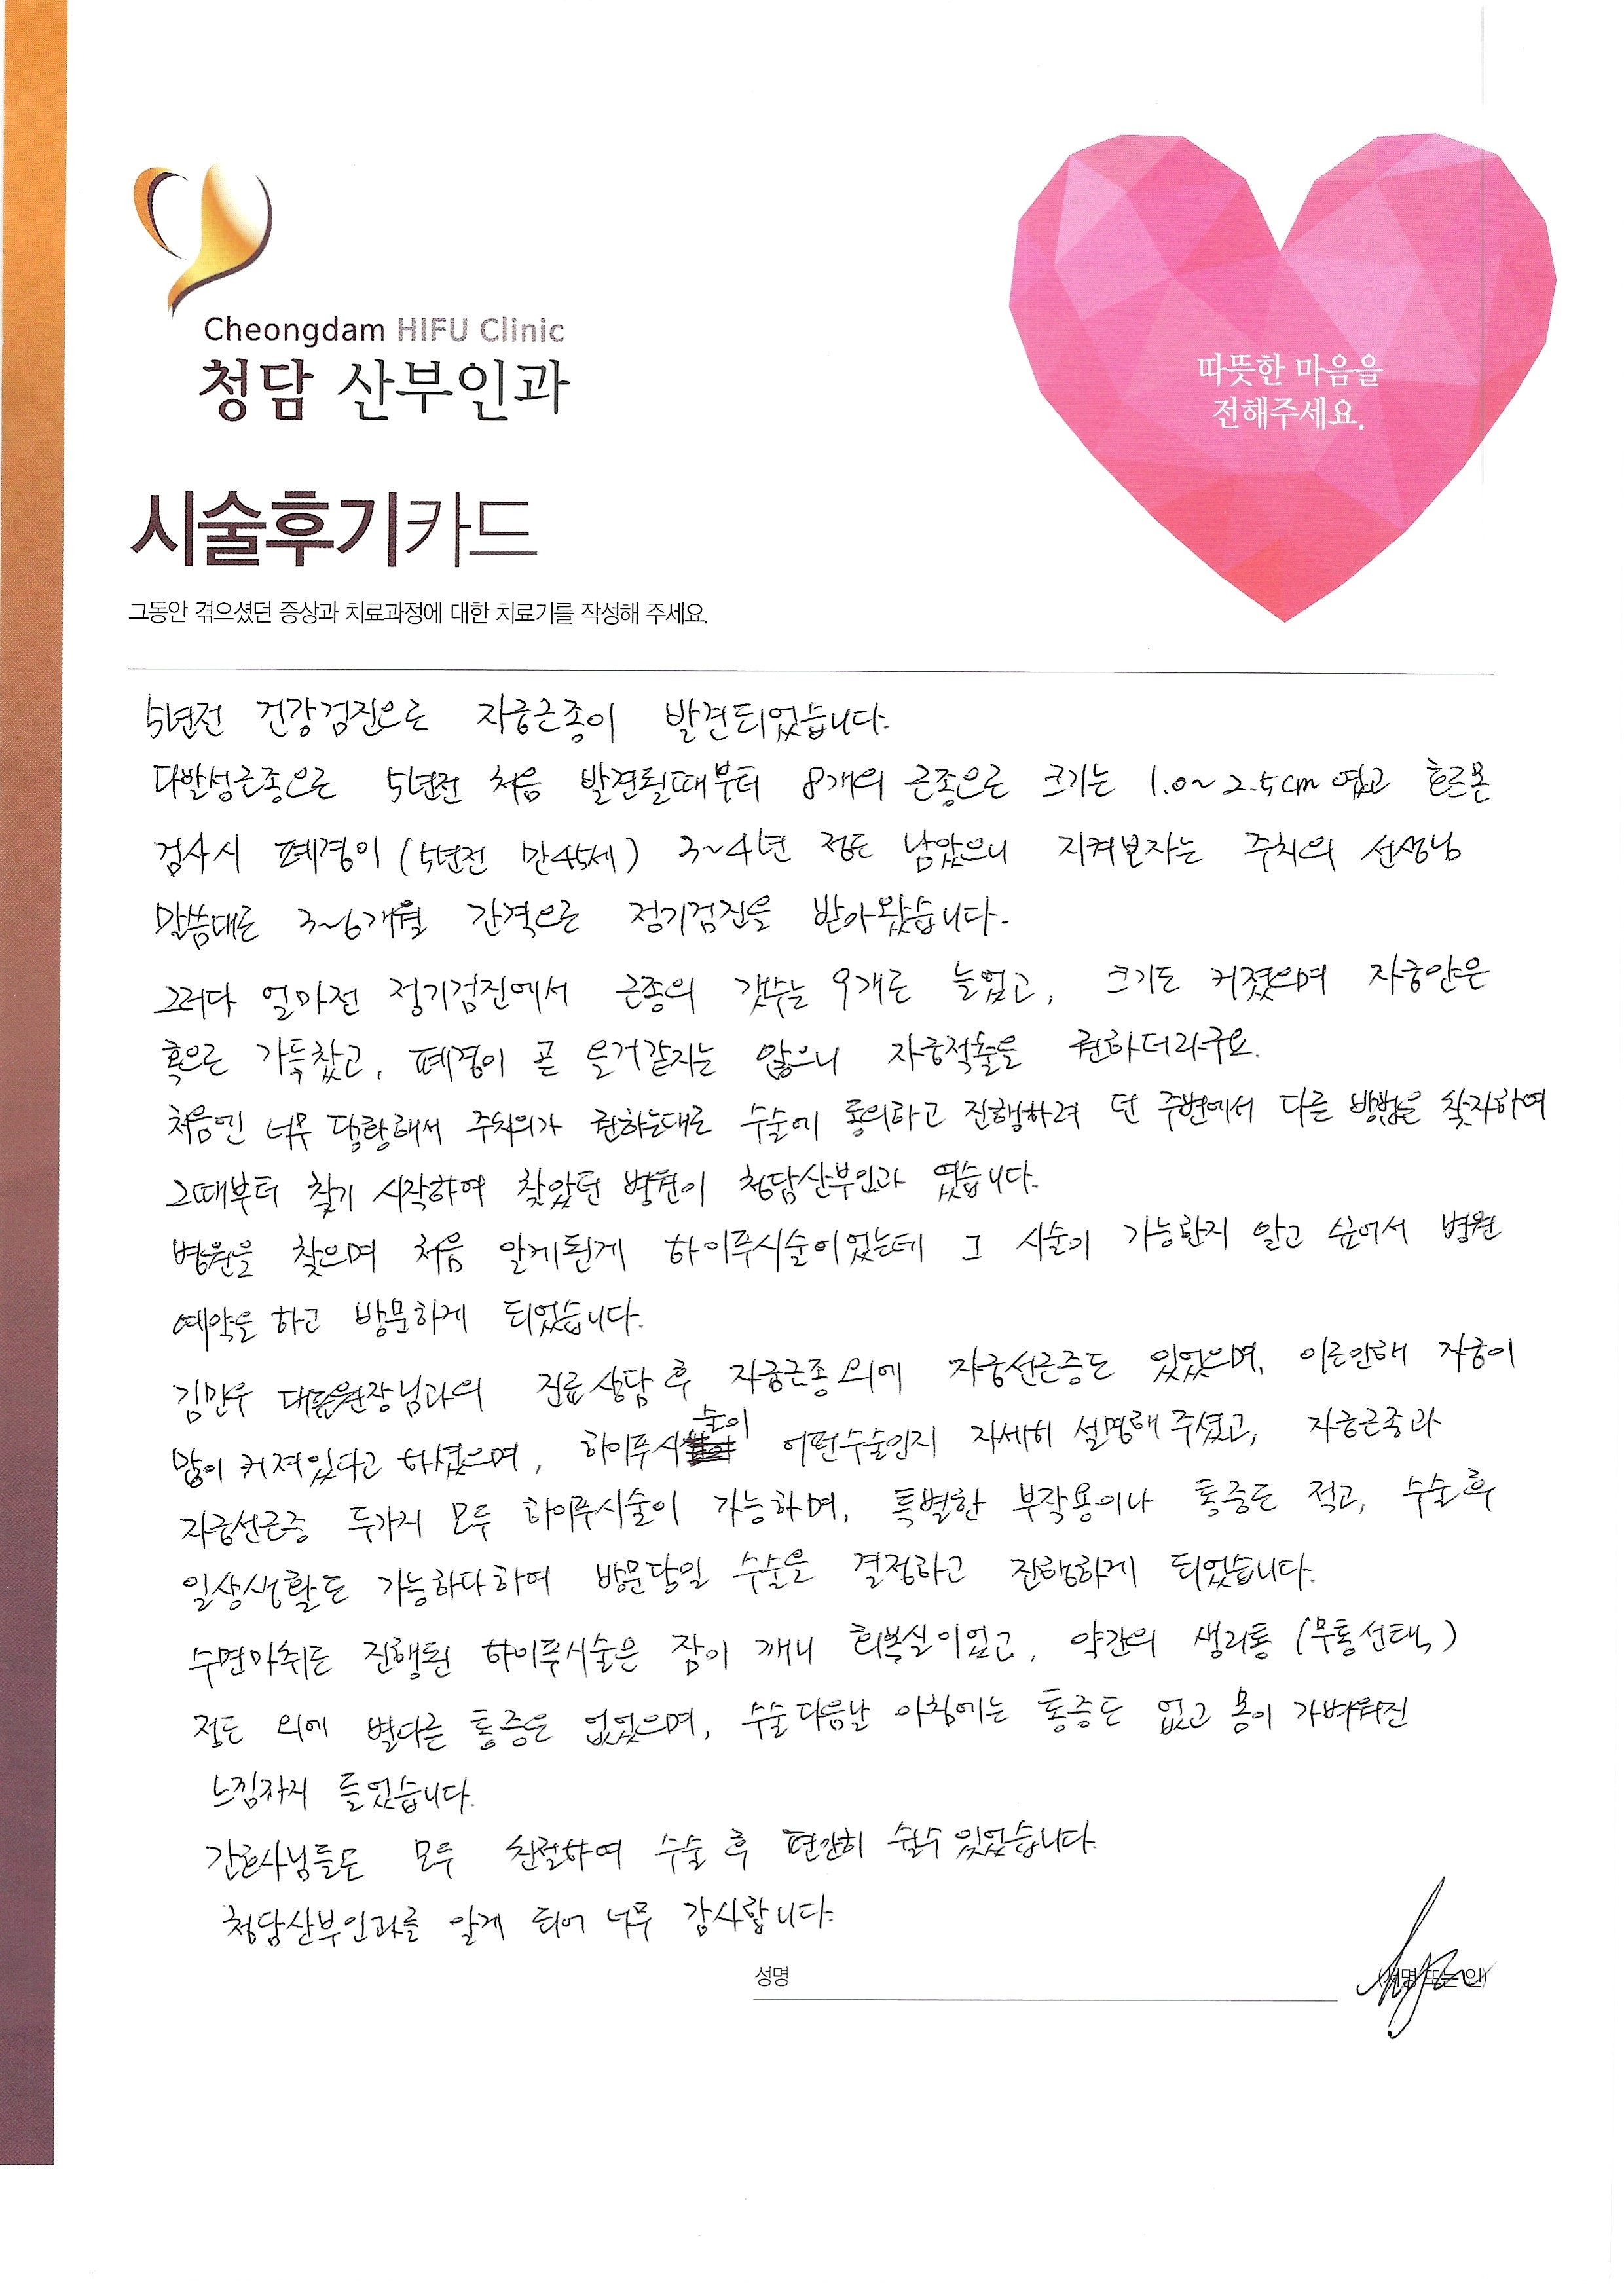 Cheongdam HIFU Clinic
청담 산부인과
따뜻한 마음을
전해주세요.
시술후기카드
그동안 겪으셨던 증상과 치료과정에 대한 치료기를 작성해 주세요.
5년전 건강검진으로 자궁근종이 발견되었습니다.
다발성근종으로 5년전 처음 발견될때부터 8개의 근종으로 크기는 1.0~2.5cm 였고 호르몬
검사시 폐경이 (5년전 만45세) 3~4년 정도 남았으니 지켜보자는 주치의 선생님
말씀대로 3~6개월 간격으로 정기검진을 받아왔습니다.
그러다 얼마전 정기검진에서 근종의 갯수는 9개로 늘었고, 크기도 커졌으며 자궁안은
혹으로 가득찼고, 폐경이 곧 올거같지는 않으니 자궁적출을 권하더라구요.
처음엔 너무 당황해서 주치의가 권하는대로 수술에 동의하고 진행하려 던 주변에서 다른 방법을 찾자하여
그때부터 찾기 시작하여 찾았던 병원이 청담산부인과 였습니다.
병원을 찾으며 처음 알게된게 하이푸시술이었는데 그 시술이 가능한지 알고 싶어서 병원
예약을 하고 방문하게 되었습니다.
김민우 대표원장님과의 진료상담 후 자궁근종 외에 자궁선근증도 있었으며, 이로인해 자궁이
많이 커져있다고 하셨으며, 하이푸시술이 어떤수술인지 자세히 설명해 주셨고, 자궁근종과
자궁선근증 두가지 모두 하이푸시술이 가능하며, 특별한 부작용이나 통증도 적고, 수술후
일상생활도 가능하다하여 방문당일 수술을 결정하고 진행하게 되었습니다.
수면마취로 진행된 하이푸시술은 잠이 깨니 회복실이었고, 약간의 생리통 (무통선택)
정도 외에 별다른 통증은 없었으며, 수술다음날 아침에는 통증도 없고 몸이 가벼워진
느낌까지 들었습니다.
간호사님들도 모두 친절하여 수술 후 편안히 쉴수 있었습니다.
청담산부인과를 알게 되어 너무 감사합니다.
성명